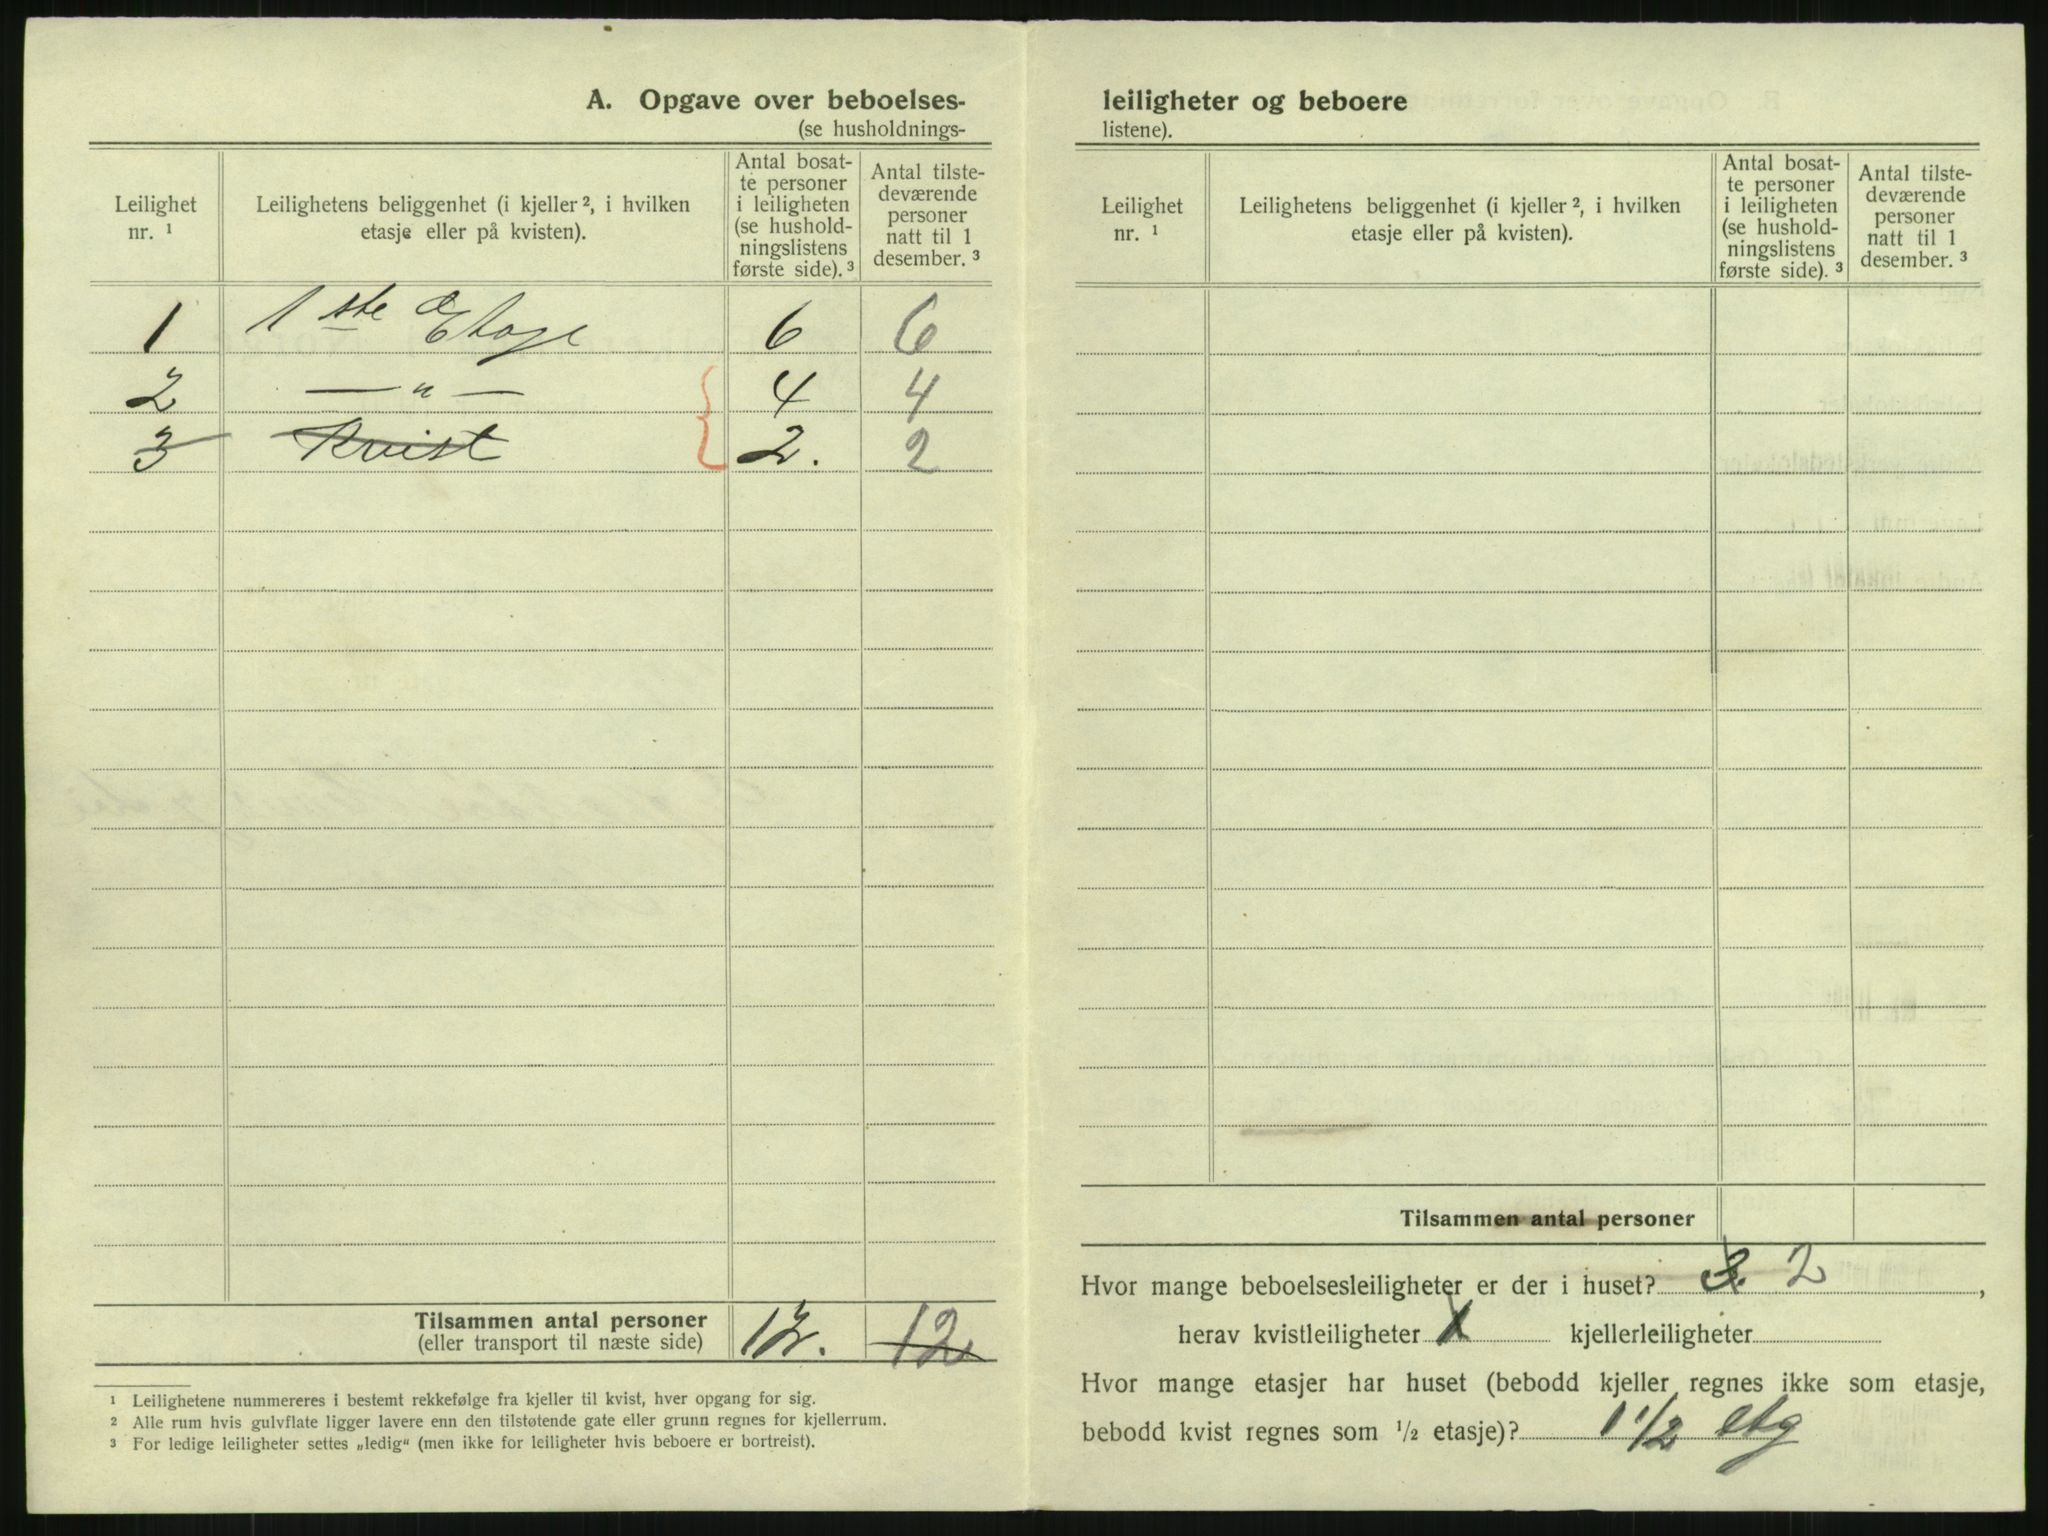 A. Opgave over beboelses-
(se husholdnings-
Leilighet nr. ¹
Leilighetens beliggenhet (i kjeller ², i hvilken etasje eller på kvisten).
Antal bosat-
te personer
i leiligheten
(se hushold-
ningslistens
første side). ³
Antal tilste-
deværende
personer
natt til 1
desember. ³
1 1ste Etage 6 6
2 — " — 4 4
3 Kvist 2. 2
Tilsammen antal personer 12. 12
(eller transport til næste side)
¹ Leilighetene nummereres i bestemt rekkefølge fra kjeller til kvist, hver opgang for sig.
² Alle rum hvis gulvflate ligger lavere enn den tilstøtende gate eller grunn regnes for kjellerrum.
³ For ledige leiligheter settes „ledig“ (men ikke for leiligheter hvis beboere er bortreist).
leiligheter og beboere
listene).
Leilighet nr. ¹
Leilighetens beliggenhet (i kjeller ², i hvilken etasje eller på kvisten).
Antal bosat-
te personer
i leiligheten
(se hushold-
ningslistens
første side). ³
Antal tilste-
deværende
personer
natt til 1
desember. ³
Tilsammen antal personer
Hvor mange beboelsesleiligheter er der i huset? 3. 2,
herav kvistleiligheter 1 kjellerleiligheter
Hvor mange etasjer har huset (bebodd kjeller regnes ikke som etasje,
bebodd kvist regnes som ½ etasje)? 1 1/2 etg